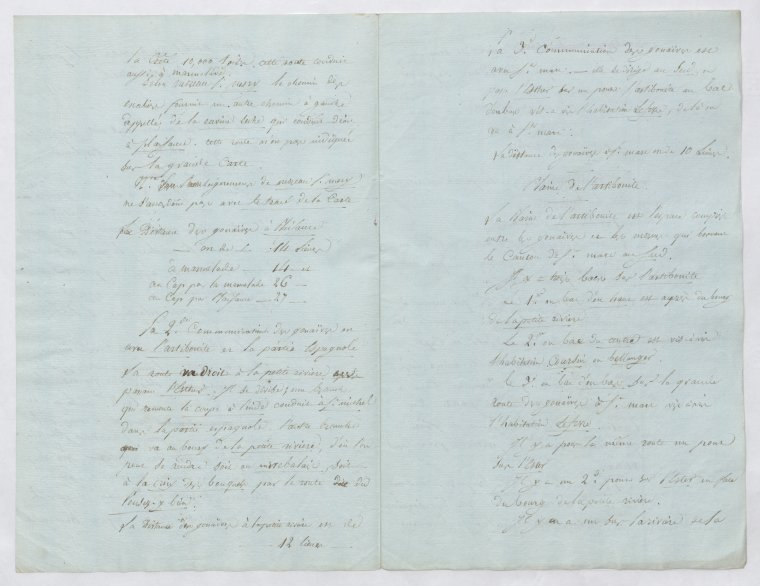 la Crête 10,000 toises. cette route conduit
aussi à marmelade.
le chemin des
gonaïves fournit un autre chemin à gauche
appellé de la ravine seche qui conduit
à plaisance. cette route n'est pas indiquée
sur la grande Carte
de ruisseau St. marc
ne pas avec le tracé de la Carte
Distance des gonaïves à Plaisance
est de 14 Lieues
à marmelade — 14 — et
au Cap par la marmelade 26 —
au Cap par Plaisance — 27 —
La 2e. Communication des gonaïves est
avec l'artibonite et la partie Espagnole
La route va droit à la petite rivière
passant l'Ester. Il se divise; une branche
qui remonte la coupe à l'inde conduit à St. michel
dans la partie espagnole l'autre branche
va au bourg de la petite rivière, d'où l'on
peut se rendre soit au mirebalais, soit
à la croix des bouquets par la route du
fonds
La distance des gonaïves à la petite rivière est de
12 lieues —
La 3e. Communication des gonaïves est
avec St. marc. — elle se dirige au Sud, on
passe l'Ester sur un pont l'artibonite au bac
d'en bas vis à vis l'habitation , de là on
va à St. marc.
La distance des gonaïves à St. marc est de 10 Lieues.
Plaine de l'artibonite
La Plaine de l'artibonite est l'espace compris
entre les gonaïves et les mornes qui bornent
le Canton de St. marc au Sud.
Il y a trois bacs sur l'artibonite
Le 1er. ou bac d'en haut est auprès du bourg
de la petite rivière.
Le 2e. ou bac du centre est vis à vis
l'habitation ou bellanger.
Le 3e. ou bac d'en bas, sur la grande
route des gonaïves à St. marc vis à vis
l'habitation
Il y a pour la même route un pont
sur l'Ester
Il y a un 2e. pont sur l'Ester en face
du bourg de la petite rivière.
Il y en a un sur la rivière de la